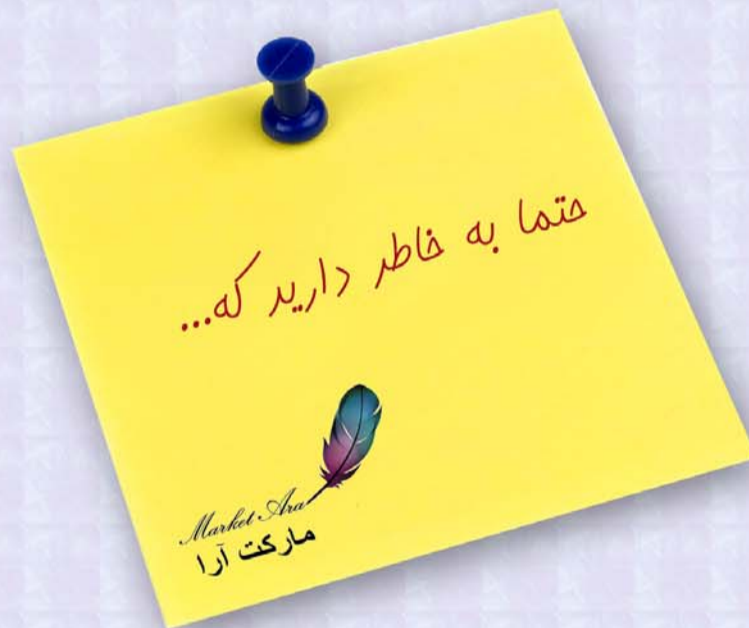 حتما به خاطر دارید که...
Market Ara
مارکت آرا